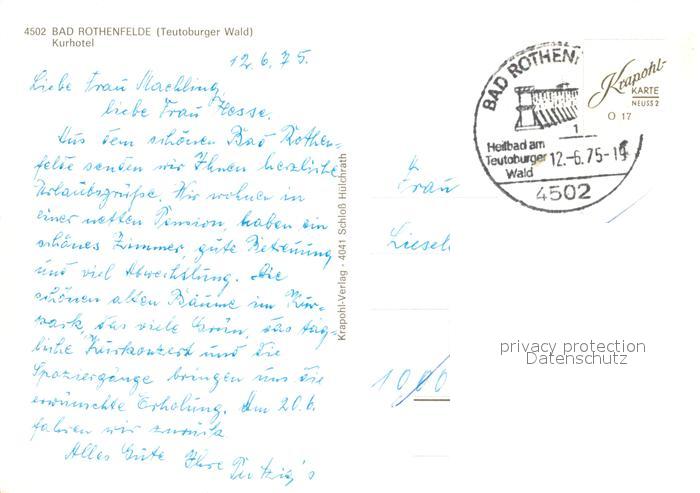 4502 BAD ROTHENFELDE (Teutoburger Wald)
Kurhotel
12.6.75.
Liebe Frau Machling,
liebe Frau Hesse.
Aus dem schönen Bad Rothen-
felde senden wir Ihnen herzliche
Urlaubsgrüße. Wir wohnen in
einer netten Pension, haben ein
schönes Zimmer, gute Betreuung
und viel Abwechslung. Die
schönen alten Bäume im Kur-
park, das viele Grün, das täg-
liche Kurkonzert und die
Spaziergänge bringen uns die
erwünschte Erholung. Am 20.6.
fahren wir zurück.
Alles Gute Ihre
Krapohl-Verlag · 4041 Schloß Hülchrath
BAD ROTHEN
1
Heilbad am
Teutoburger
Wald
12.-6.75-19
4502
Krapohl-
KARTE
NEUSS 2
O 17
Frau
Liesel
1000
privacy protection
Datenschutz